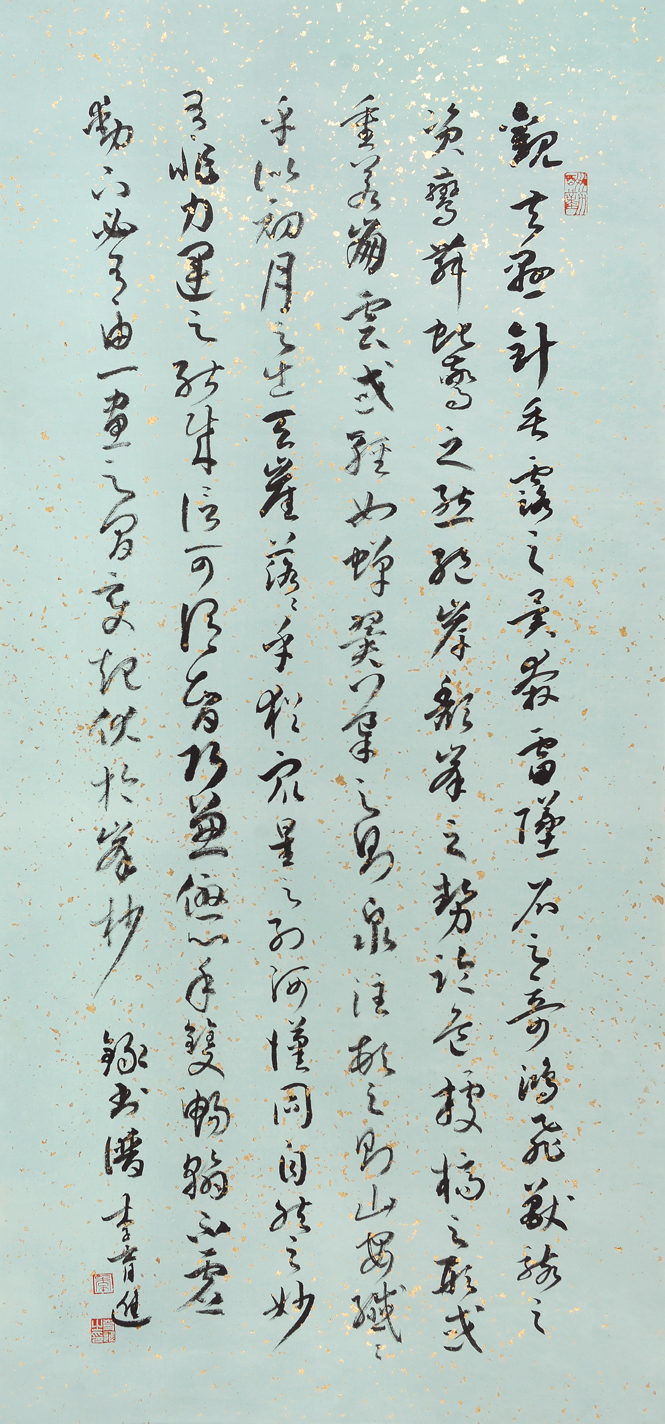 觀夫懸針垂露之異奔雷墜石之奇鴻飛獸駭之
資鸞舞蛇驚之態絕岸頹峯之勢臨危據槁之形或
重若崩雲或輕如蟬翼導之則泉注頓之則山安纖々
乎似初月之出天崖落々乎猶眾星之列河漢同自然之妙
有非力運之能成信可謂智巧兼優心手雙暢翰不虛
動下必有由一畫之間變起伏於峯杪 錄書譜 李育進